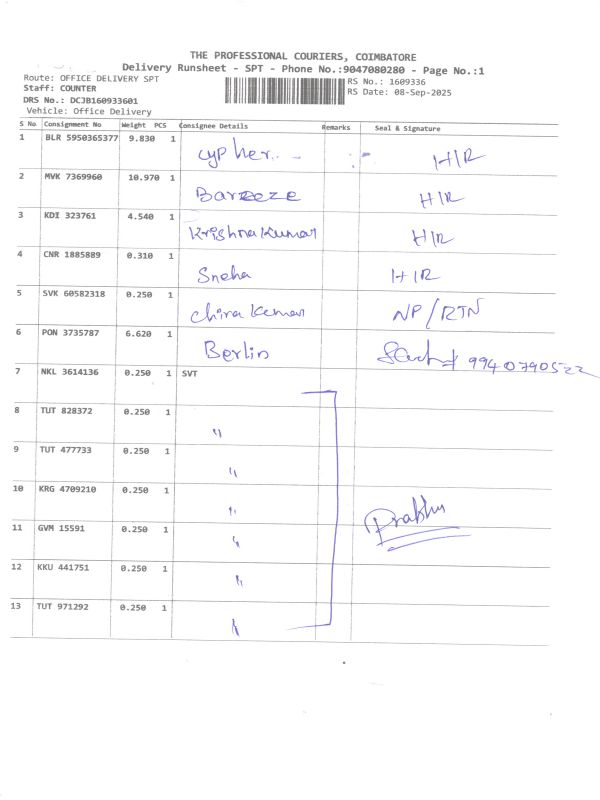 THE PROFESSIONAL COURIERS, COIMBATORE
Delivery Runsheet - SPT - Phone No.:9047080280 - Page No.:1
Route: OFFICE DELIVERY SPT RS No.: 1609336
Staff: COUNTER RS Date: 08-Sep-2025
DRS No.: DCJB160933601
Vehicle: Office Delivery
S No Consignment No Weight PCS Consignee Details Remarks Seal & Signature
1 BLR 5950365377 9.830 1 Cypher... H/R
2 MVK 7369960 10.970 1 Bareeze H/R
3 KDI 323761 4.540 1 Krishna Kumar H/R
4 CNR 1885889 0.310 1 Sneha H/R
5 SVK 60582318 0.250 1 Chira Kumar NP/RTN
6 PON 3735787 6.620 1 Berlin 9940790522
7 NKL 3614136 0.250 1 SVT
8 TUT 828372 0.250 1 "
9 TUT 477733 0.250 1 "
10 KRG 4709210 0.250 1 " Prabhu
11 GVM 15591 0.250 1 "
12 KKU 441751 0.250 1 "
13 TUT 971292 0.250 1 "